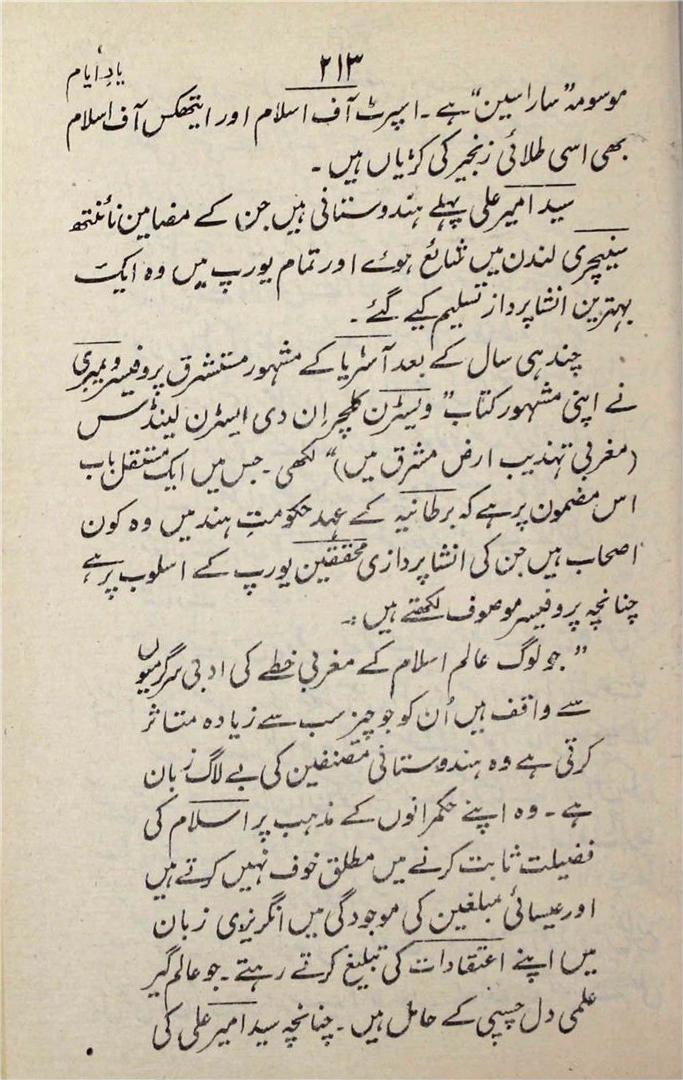 ۲۱۳
یادِ ایام
موسومہ "سارا سین" ہے۔ اسپرٹ آف اسلام اور ایتھکس آف اسلام
بھی اسی طلائی زنجیر کی کڑیاں ہیں۔
سید امیر علی پہلے ہندوستانی ہیں جن کے مضامین نائنتھ
سینچری لندن میں شائع ہوئے اور تمام یورپ میں وہ ایک
بہترین انشا پرداز تسلیم کیے گئے۔
چند ہی سال کے بعد آسٹریا کے مشہور مستشرق پروفیسر ویمبری
نے اپنی مشہور کتاب "ویسٹرن کلچر اِن دی ایسٹرن لینڈس
(مغربی تہذیب ارض مشرق میں)" لکھی۔ جس میں ایک مستقل باب
اس مضمون پر ہے کہ برطانیہ کے عہد حکومتِ ہند میں وہ کون
اصحاب ہیں جن کی انشا پردازی محققین یورپ کے اسلوب پر ہے
چنانچہ پروفیسر موصوف لکھتے ہیں:۔
"جو لوگ عالم اسلام کے مغربی خطے کی ادبی سرگرمیوں
سے واقف ہیں اُن کو جو چیز سب سے زیادہ متاثر
کرتی ہے وہ ہندوستانی مصنفین کی بے لاگ زبان
ہے۔ وہ اپنے حکمرانوں کے مذہب پر اسلام کی
فضیلت ثابت کرنے میں مطلق خوف نہیں کرتے ہیں
اور عیسائی مبلغین کی موجودگی میں انگریزی زبان
میں اپنے اعتقادات کی تبلیغ کرتے رہتے۔ جو عالم گیر
علمی دل چسپی کے حامل ہیں۔ چنانچہ سید امیر علی کی